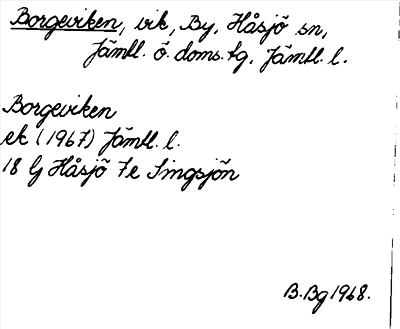 Borgeviken, vik, By, Håsjö sn,
Jämtl. ö. doms. tg, Jämtl. l.
Borgeviken
ek (1967) Jämtl. l.
18 G Håsjö 7e Singsjön
B.Bg 1968.